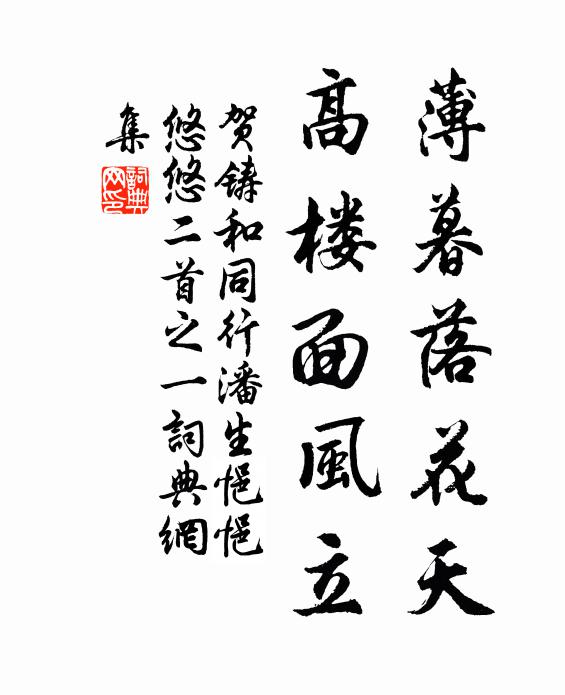 薄暮落花天
高楼面風立
贺鋳和同行潘生悒悒
悠悠二首之一詞典網
集
詞典
网印